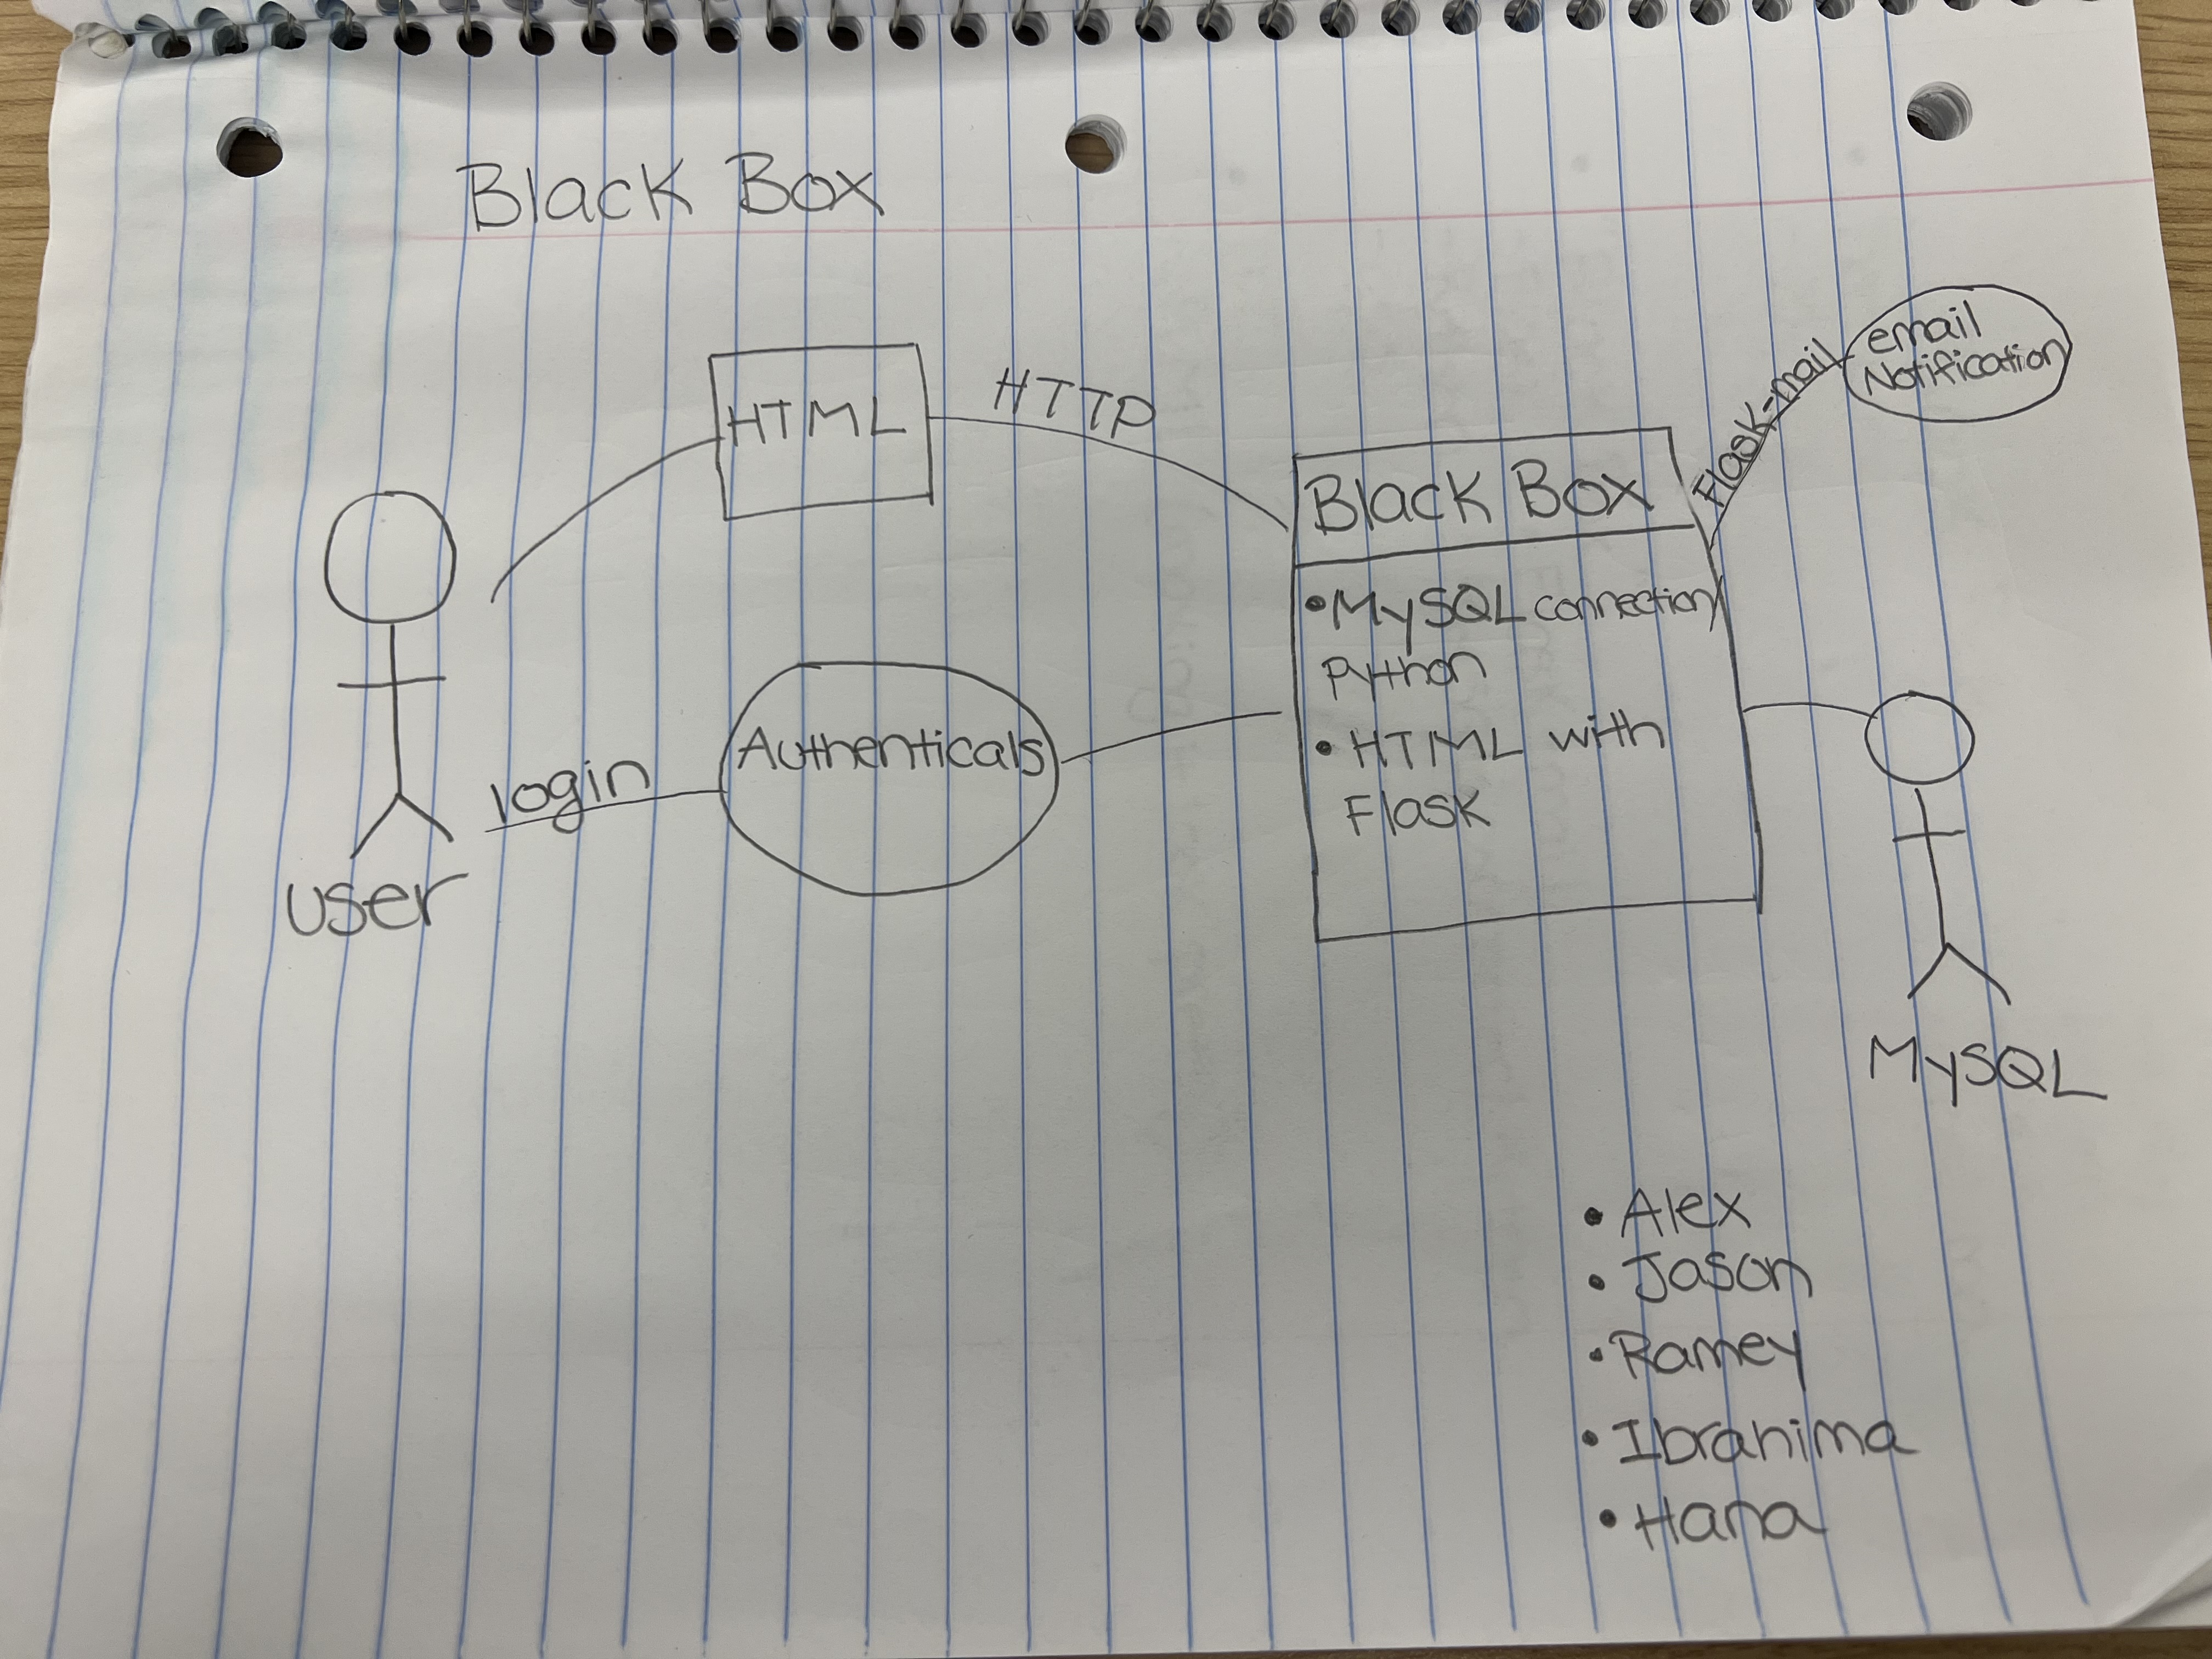 Black Box
HTML
HTTP
User
login
Authenticals
Black Box
• MySQL connection
Python
• HTML with
Flask
Flask-mail
email
Notification
MySQL
• Alex
• Jason
• Ramey
• Ibranima
• Hana